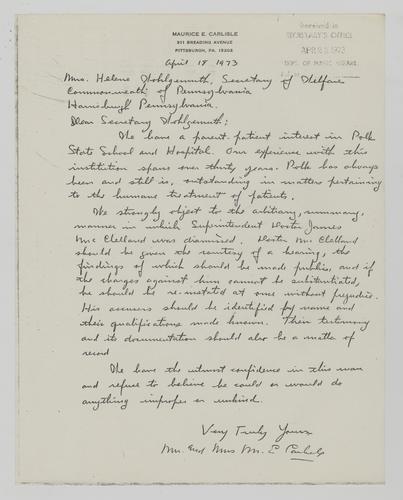 MAURICE E. CARLISLE
911 BREADING AVENUE
PITTSBURGH, PA. 15202
Received in
SECRETARY'S OFFICE
1973
April 18 1973
Mrs. Helene Wohlgemuth, Secretary of Welfare
Commonwealth of Pennsylvania
Harrisburgh Pennsylvania.
Dear Secretary Wohlgemuth:
We have a parent-patient interest in Polk
State School and Hospital. Our experience with this
institution spans over thirty years. Polk has always
been and still is, outstanding in matters pertaining
to the humane treatment of patients.
We strongly object to the arbitrary, summary,
manner in which Superintendent Doctor James
Mc Clelland was dismissed. Doctor Mc Clelland
should be given the courtesy of a hearing, the
findings of which should be made public, and if
the charges against him cannot be substantiated,
he should be re-instated at once without prejudice.
His accusers should be identified by name and
their qualifications made known. Their testimony
and its documentation should also be a matter of
record
We have the utmost confidence in this man
and refuse to believe he could or would do
anything improper or unkind.
Very Truly Yours
Mr. and Mrs M. E Carlisle